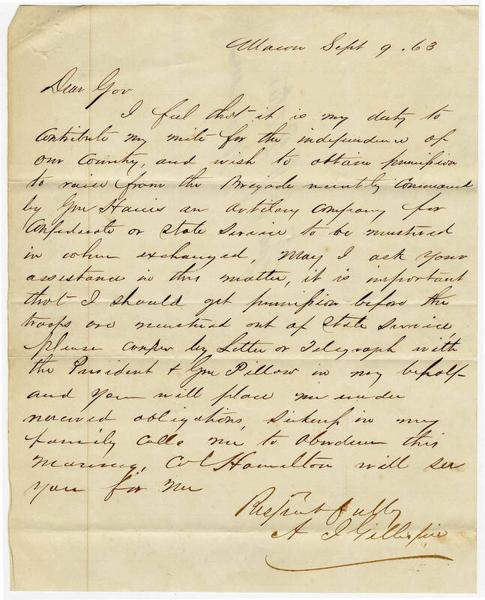 Macon Sept 9. 63
Dear Gov
I feel that it is my duty to
contribute my mite for the independence of
our Country, and wish to obtain permission
to raise from the Brigade recently Command
by Gen Harris an artillery company for
Confederate or State Service to be mustered
in when exchanged, May I ask your
assistance in this matter, it is important
that I should get permission before the
troops are mustered out of State Service,
please confer by Letter or Telegraph with
the President & Gen Pillow in my behalf
and you will place me under
renewed obligations, Sickness in my
family calls me to Aberdeen this
morning, Col Hamilton will see
you for me
Respectfully
A J Gillespie